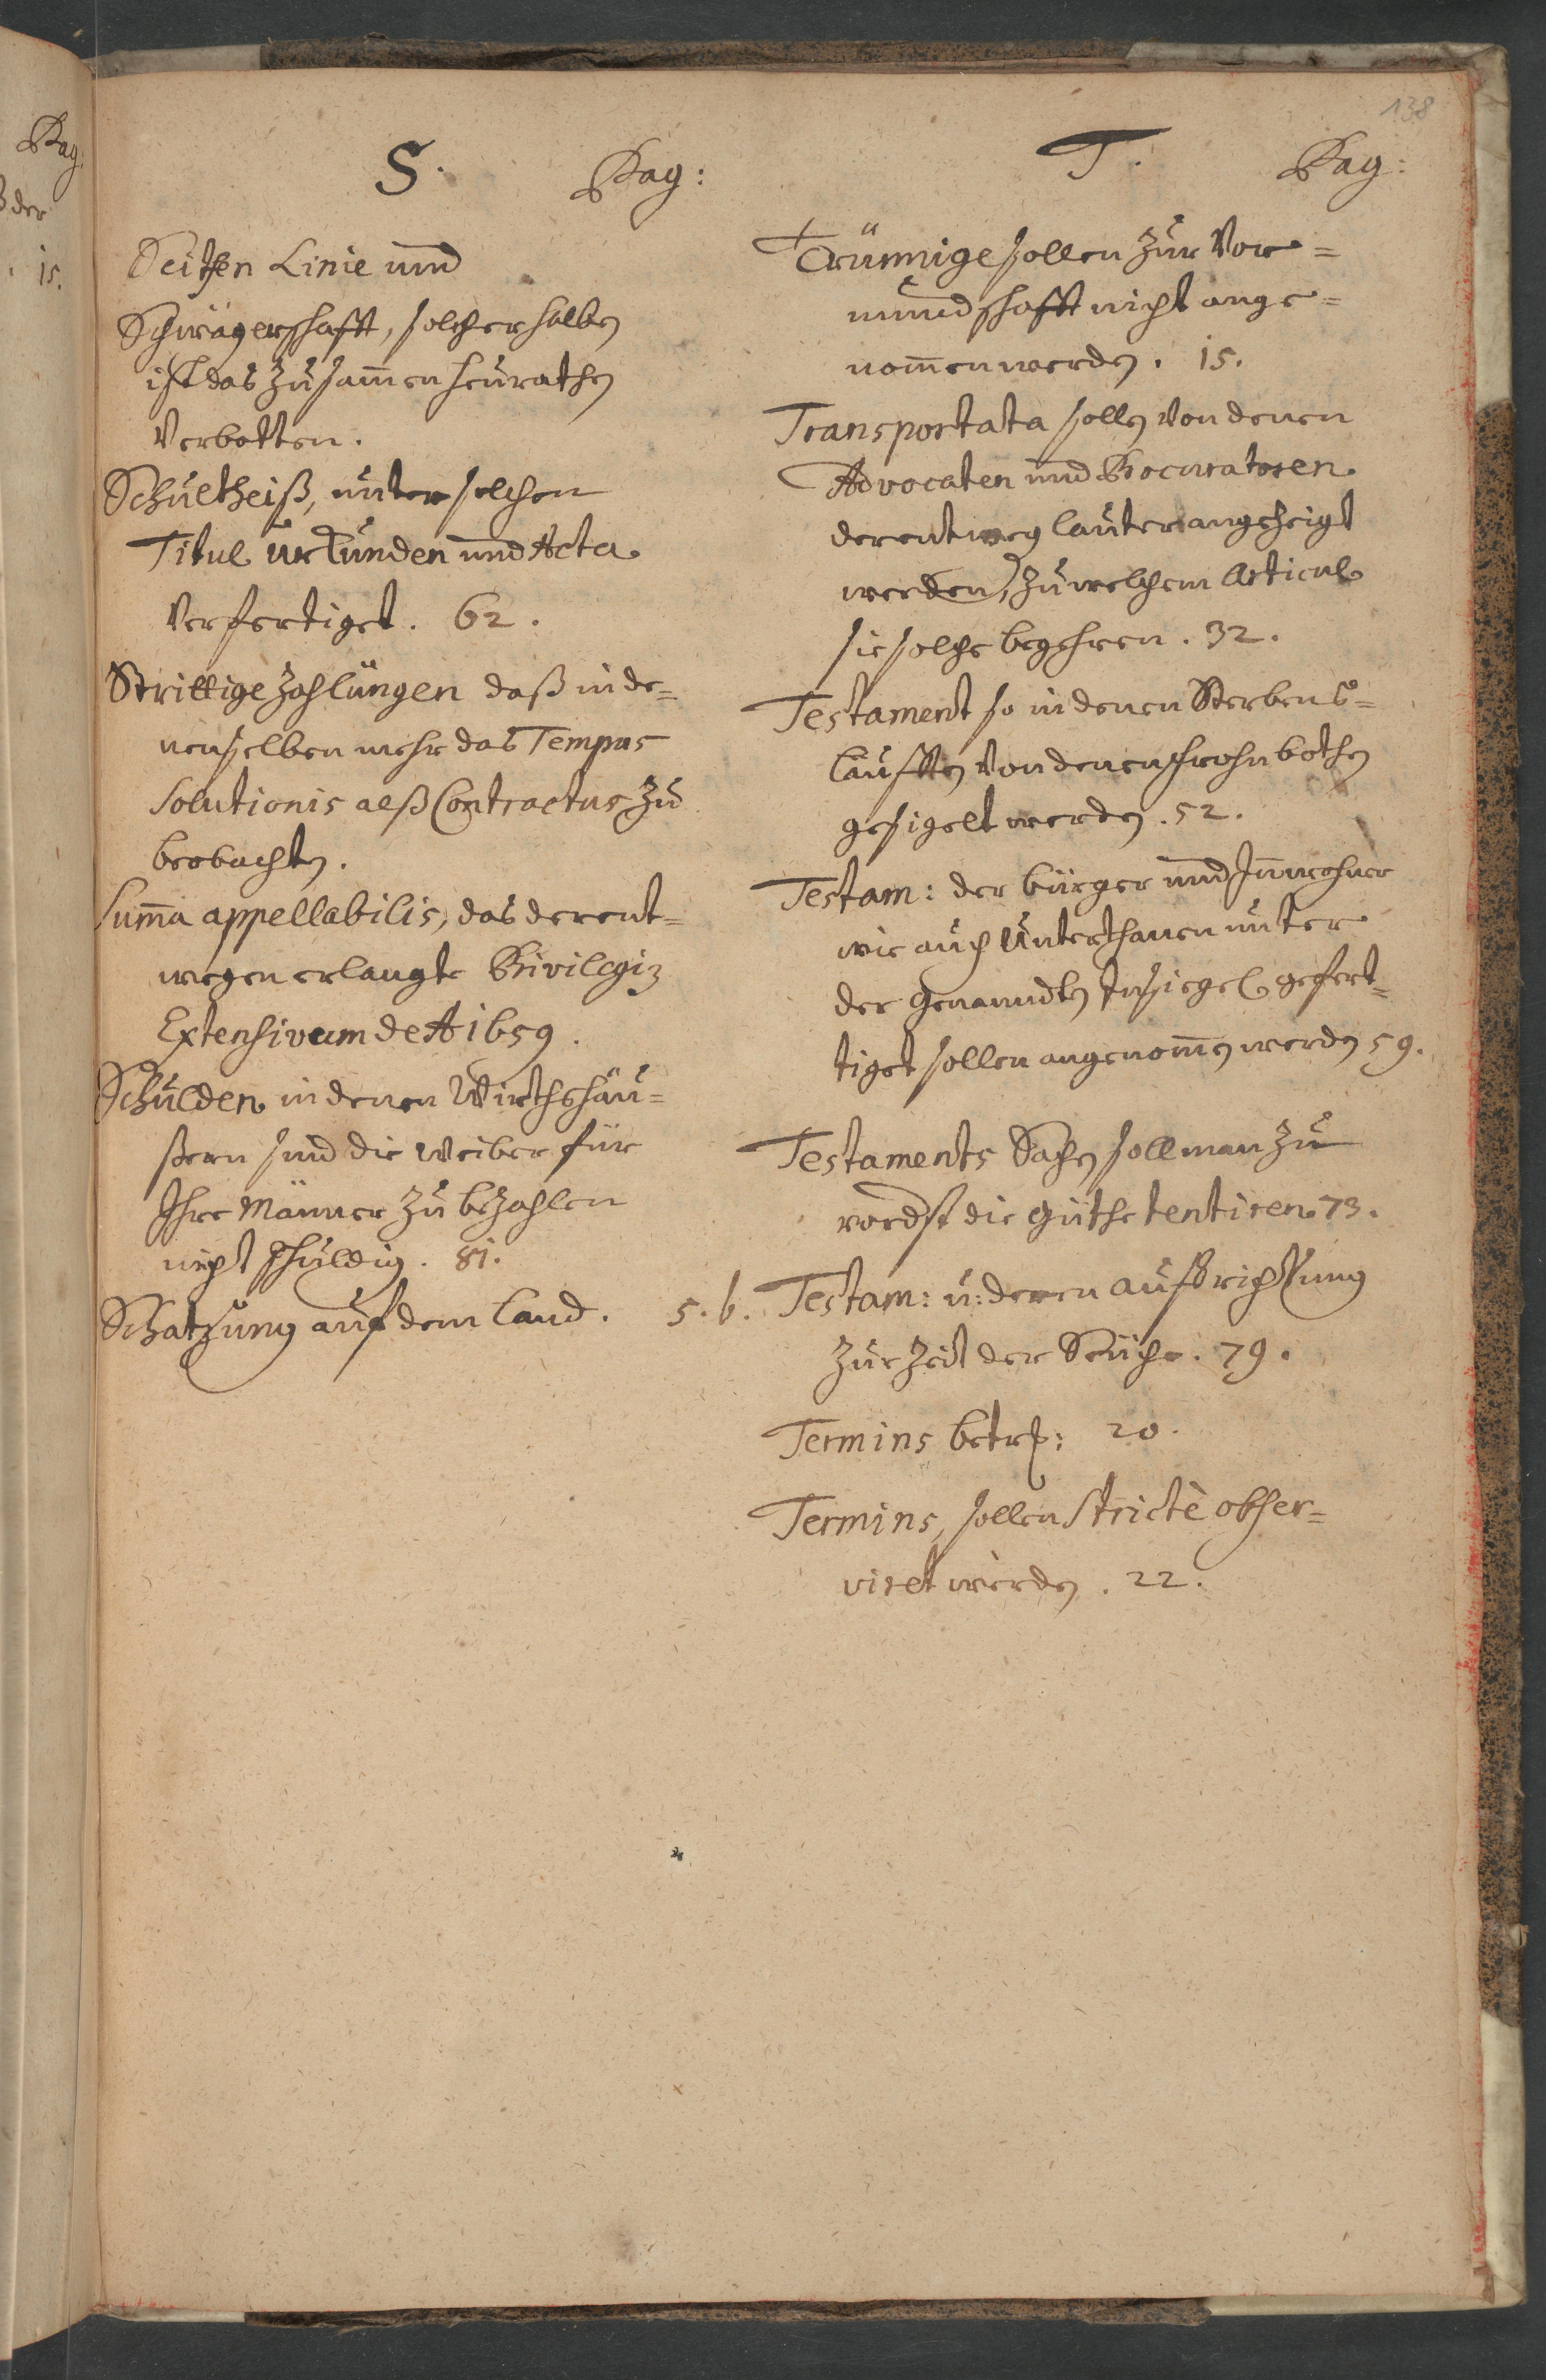 138
S. Pag:
Seithen Linie und
Schwägerschafft, solcher halben
ist das Zusam̄en heurathen
Verbotten.
Schultheiß, unter solchen
Titul Urkunden und Acta
Verfertiget. 62.
Strittige Zahlungen daß in de=
nenselben mehr das Tempus
Solutionis alß Contractus zu
beobachten.
Sum̄a appellabilis, das derent=
wegen erlangte
Extensivum de Aõ 1659.
Schulden in denen Wirthshäu=
ßern sind die Weiber für
Ihre Männer zu bezahlen
nicht schuldig. 81.
Schatzung auf dem Land. 5. b.
T. Pag:
Trünnige sollen zur Vor=
mundschafft nicht ange=
nom̄en werden. 15.
Transportata sollen von denen
Advocaten und Procuratoren
derentweg lauter angeheigt
werden, zu welchem Articul
sie solche begehren. 32.
Testament so in denen Sterbens=
läufften von denen frohnbothen
gesigelt werden. 52.
Testam: der bürger und Inwohner
wie auch Unterthanen unter
der Genanndten Insiegel gefert=
tiget sollen angenom̄en werden 59.
Testaments Sachen soll man zu
vordst die Güthe tentiren. 73.
Testam: u: deren aufrichtung
zur Zeit der Seuche. 79.
Termins betrf: 20.
Termins, sollen strictè obser=
viret werden. 22.
Pag
der
15.